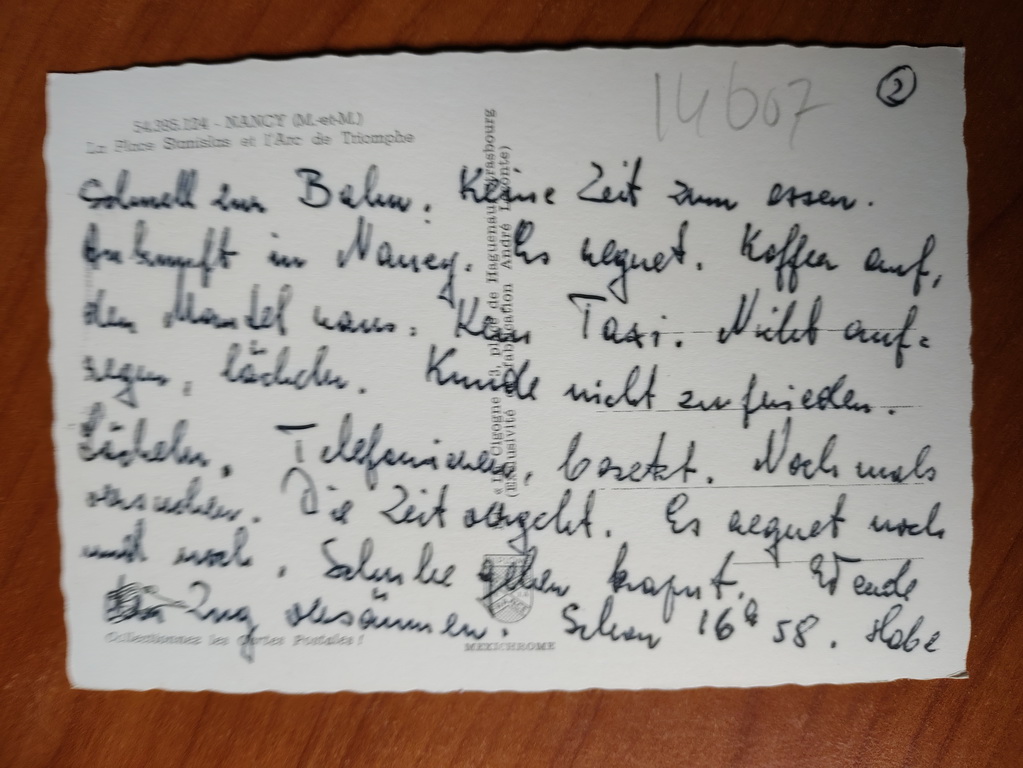 14607
2
54.395.124 - NANCY (M.-et-M.)
La Place Stanislas et l'Arc de Triomphe
Schnell zur Bahn. Keine Zeit zum essen.
Ankunft in Nancy. Es regnet. Koffer auf,
den Mantel raus. Kein Taxi. Nicht auf=
regen, lächeln. Kunde nicht zufrieden.
Lächeln. Telefonieren, besetzt. Nochmals
versuchen. Die Zeit vergeht. Es regnet noch
und noch. Schuhe gehen kaput. Werde
Zug versäumen. Schon 16h 58. Habe
Collectionnez les Cartes Postales !
MEXICHROME
place de Haguenau Strasbourg
Fabrication André